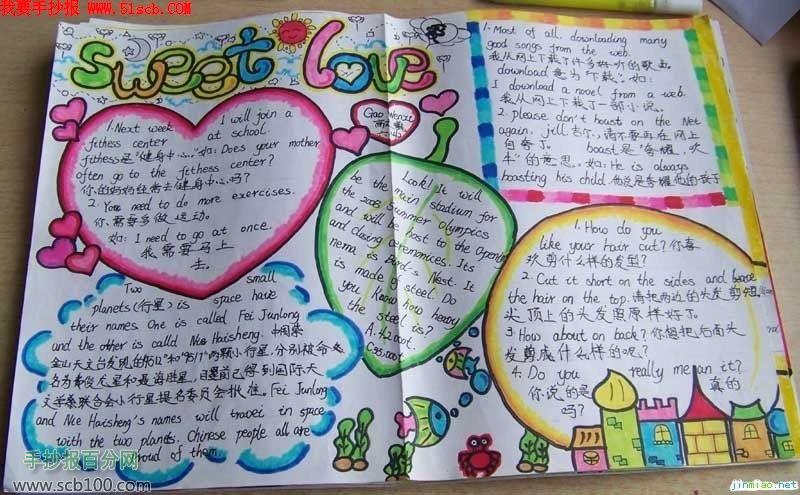 我要手抄报 www.51scb.com
sweet love
Gao Wenxi
1. Next week I will join a
fitness center at school.
fithess是"健身中心."如: Does your mother
often go to the fithess center?
你的妈妈经常去健身中心吗?
2. You need to do more exercises.
你需要多做运动.
如: I need to go at once.
我需要马上
去.
Two small
planets(行星) is space have
their names One is called Fei Junlong
and the other is called Nie Haisheng.中国紫
金山天文台发现的"9512"和"9517"两颗小行星,分别被命
名为费俊龙星和聂海胜星,目前已得到国际天
文学联合会小行星提名委员会批准. Fei Junlong
and Nie Haisheng's names will travel in space
with the two planets. Chinese people all are
proud of them
Look! It will
be the main stadium for
the 2008 Summer Olympics
and will be host to the Opening
and closing ceremonices. Its
nema is Bird's Nest. It
is made of steel. Do
you know how heavy
the steel is?
A. 42000t.
C.35000t.
1. Most of all. downloading many
good songs from the web.
我从网上下载了许多好听的歌曲.
download 意为"下载".如:
I download a novel from a web.
我从网上下载了一部小说.
2. please don't boast on the Net
again, jill 吉尔,请不要再在网上
自夸了. boast是"夸耀,吹
牛"的意思.如: He is always
boasting his child.他总是夸耀他的孩子
1. How do you
like your hair cut?你喜
欢剪什么样的发型?
2. Cut it short on the sides and leave
the hair on the top.请把两边的头发剪短
头顶上的头发照原样好了.
3. How about on back?你想把后面头
发剪成什么样的呢?
4. Do you really mean it?
你说的是 真的
吗?
手抄报百分网
www.scb100.com
jinmiao.net